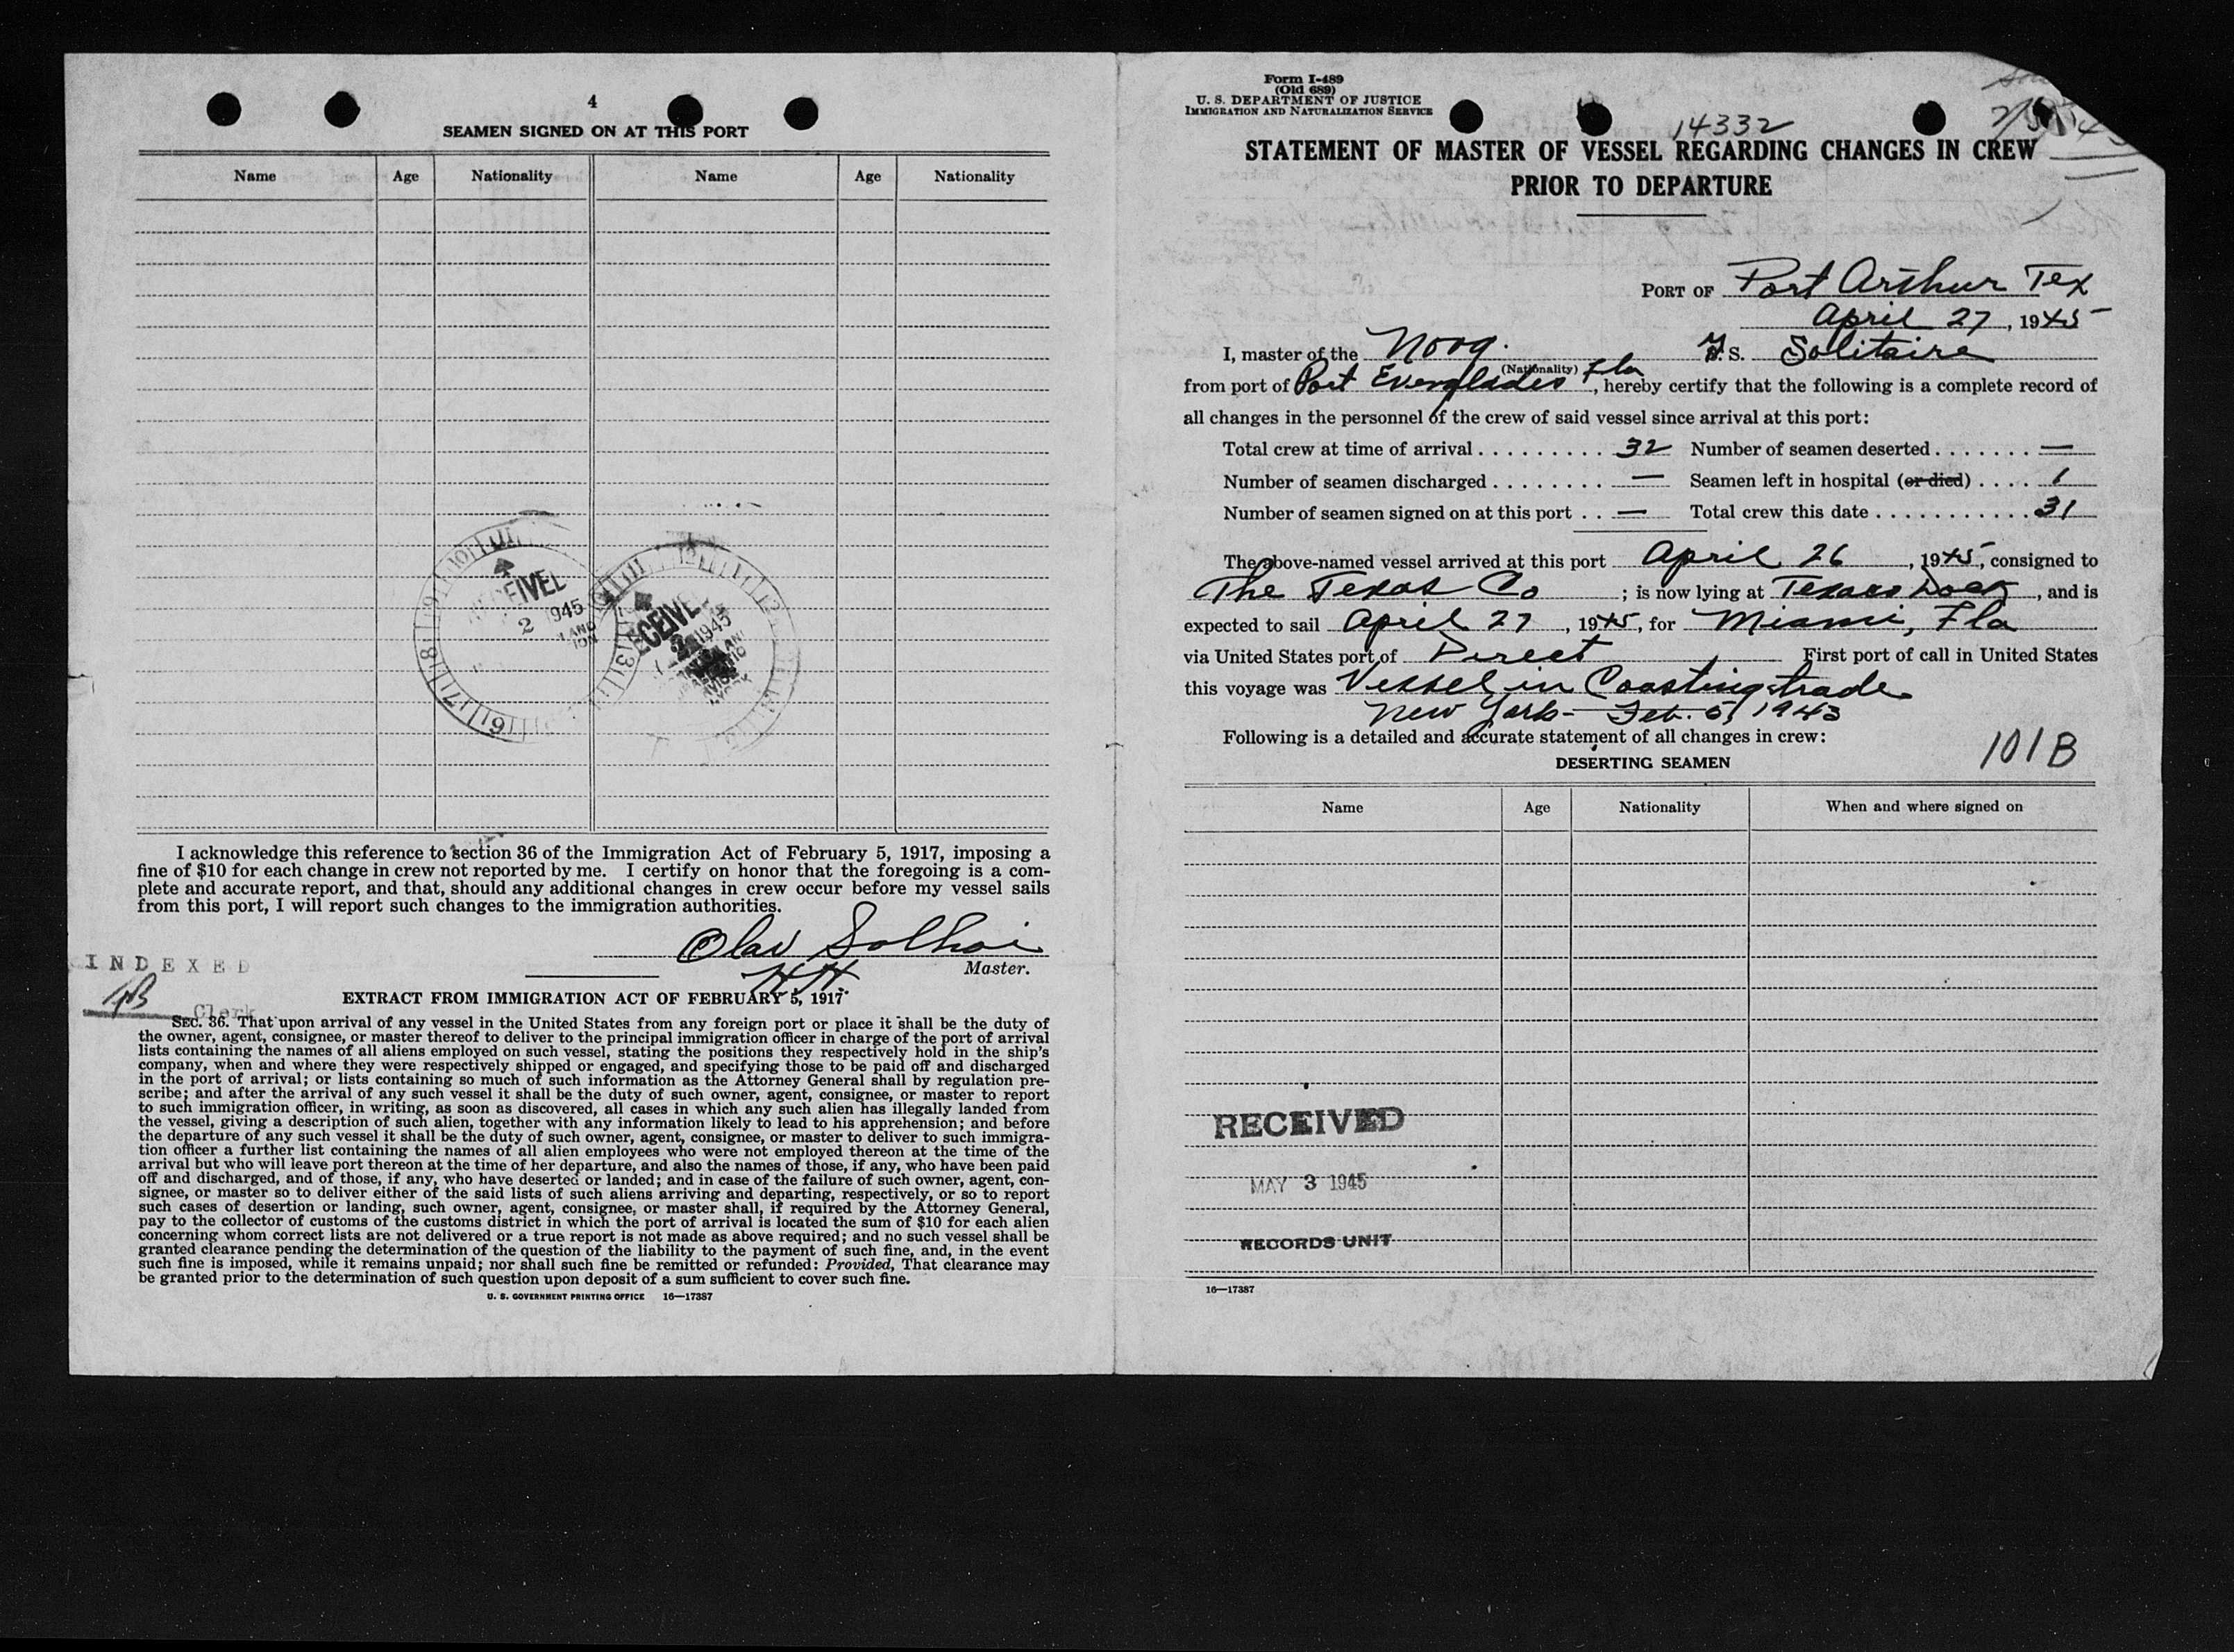 4
SEAMEN SIGNED ON AT THIS PORT
Name Age Nationality Name Age Nationality
RECEIVED
2 1945
RECEIVED
1945
I acknowledge this reference to section 36 of the Immigration Act of February 5, 1917, imposing a
fine of $10 for each change in crew not reported by me. I certify on honor that the foregoing is a com-
plete and accurate report, and that, should any additional changes in crew occur before my vessel sails
from this port, I will report such changes to the immigration authorities.
Olav Solhoi
Master.
INDEXED
Clerk
EXTRACT FROM IMMIGRATION ACT OF FEBRUARY 5, 1917
SEC. 36. That upon arrival of any vessel in the United States from any foreign port or place it shall be the duty of
the owner, agent, consignee, or master thereof to deliver to the principal immigration officer in charge of the port of arrival
lists containing the names of all aliens employed on such vessel, stating the positions they respectively hold in the ship's
company, when and where they were respectively shipped or engaged, and specifying those to be paid off and discharged
in the port of arrival; or lists containing so much of such information as the Attorney General shall by regulation pre-
scribe; and after the arrival of any such vessel it shall be the duty of such owner, agent, consignee, or master to report
to such immigration officer, in writing, as soon as discovered, all cases in which any such alien has illegally landed from
the vessel, giving a description of such alien, together with any information likely to lead to his apprehension; and before
the departure of any such vessel it shall be the duty of such owner, agent, consignee, or master to deliver to such immigra-
tion officer a further list containing the names of all alien employees who were not employed thereon at the time of the
arrival but who will leave port thereon at the time of her departure, and also the names of those, if any, who have been paid
off and discharged, and of those, if any, who have deserted or landed; and in case of the failure of such owner, agent, con-
signee, or master so to deliver either of the said lists of such aliens arriving and departing, respectively, or so to report
such cases of desertion or landing, such owner, agent, consignee, or master shall, if required by the Attorney General,
pay to the collector of customs of the customs district in which the port of arrival is located the sum of $10 for each alien
concerning whom correct lists are not delivered or a true report is not made as above required; and no such vessel shall be
granted clearance pending the determination of the question of the liability to the payment of such fine, and, in the event
such fine is imposed, while it remains unpaid; nor shall such fine be remitted or refunded: Provided, That clearance may
be granted prior to the determination of such question upon deposit of a sum sufficient to cover such fine.
U. S. GOVERNMENT PRINTING OFFICE 16—17387
Form I-489
(Old 689)
U. S. DEPARTMENT OF JUSTICE
IMMIGRATION AND NATURALIZATION SERVICE
14332
STATEMENT OF MASTER OF VESSEL REGARDING CHANGES IN CREW
PRIOR TO DEPARTURE
PORT OF Port Arthur Tex
April 27, 1945
I, master of the Norg. S. Solitaire
(Nationality)
from port of Port Everglades Fla, hereby certify that the following is a complete record of
all changes in the personnel of the crew of said vessel since arrival at this port:
Total crew at time of arrival . . . . . . . . . . 32 Number of seamen deserted . . . . . . . —
Number of seamen discharged . . . . . . . . — Seamen left in hospital (or died) . . . . 1
Number of seamen signed on at this port . . — Total crew this date . . . . . . . . . . . . 31
The above-named vessel arrived at this port April 26, 1945, consigned to
The Texas Co ; is now lying at Texaco Dock, and is
expected to sail April 27, 1945, for Miami, Fla
via United States port of Direct First port of call in United States
this voyage was Vessel in Coasting trade
New York - Feb. 5, 1943
Following is a detailed and accurate statement of all changes in crew:
101B
DESERTING SEAMEN
Name Age Nationality When and where signed on
RECEIVED
MAY 3 1945
RECORDS UNIT
16—17387